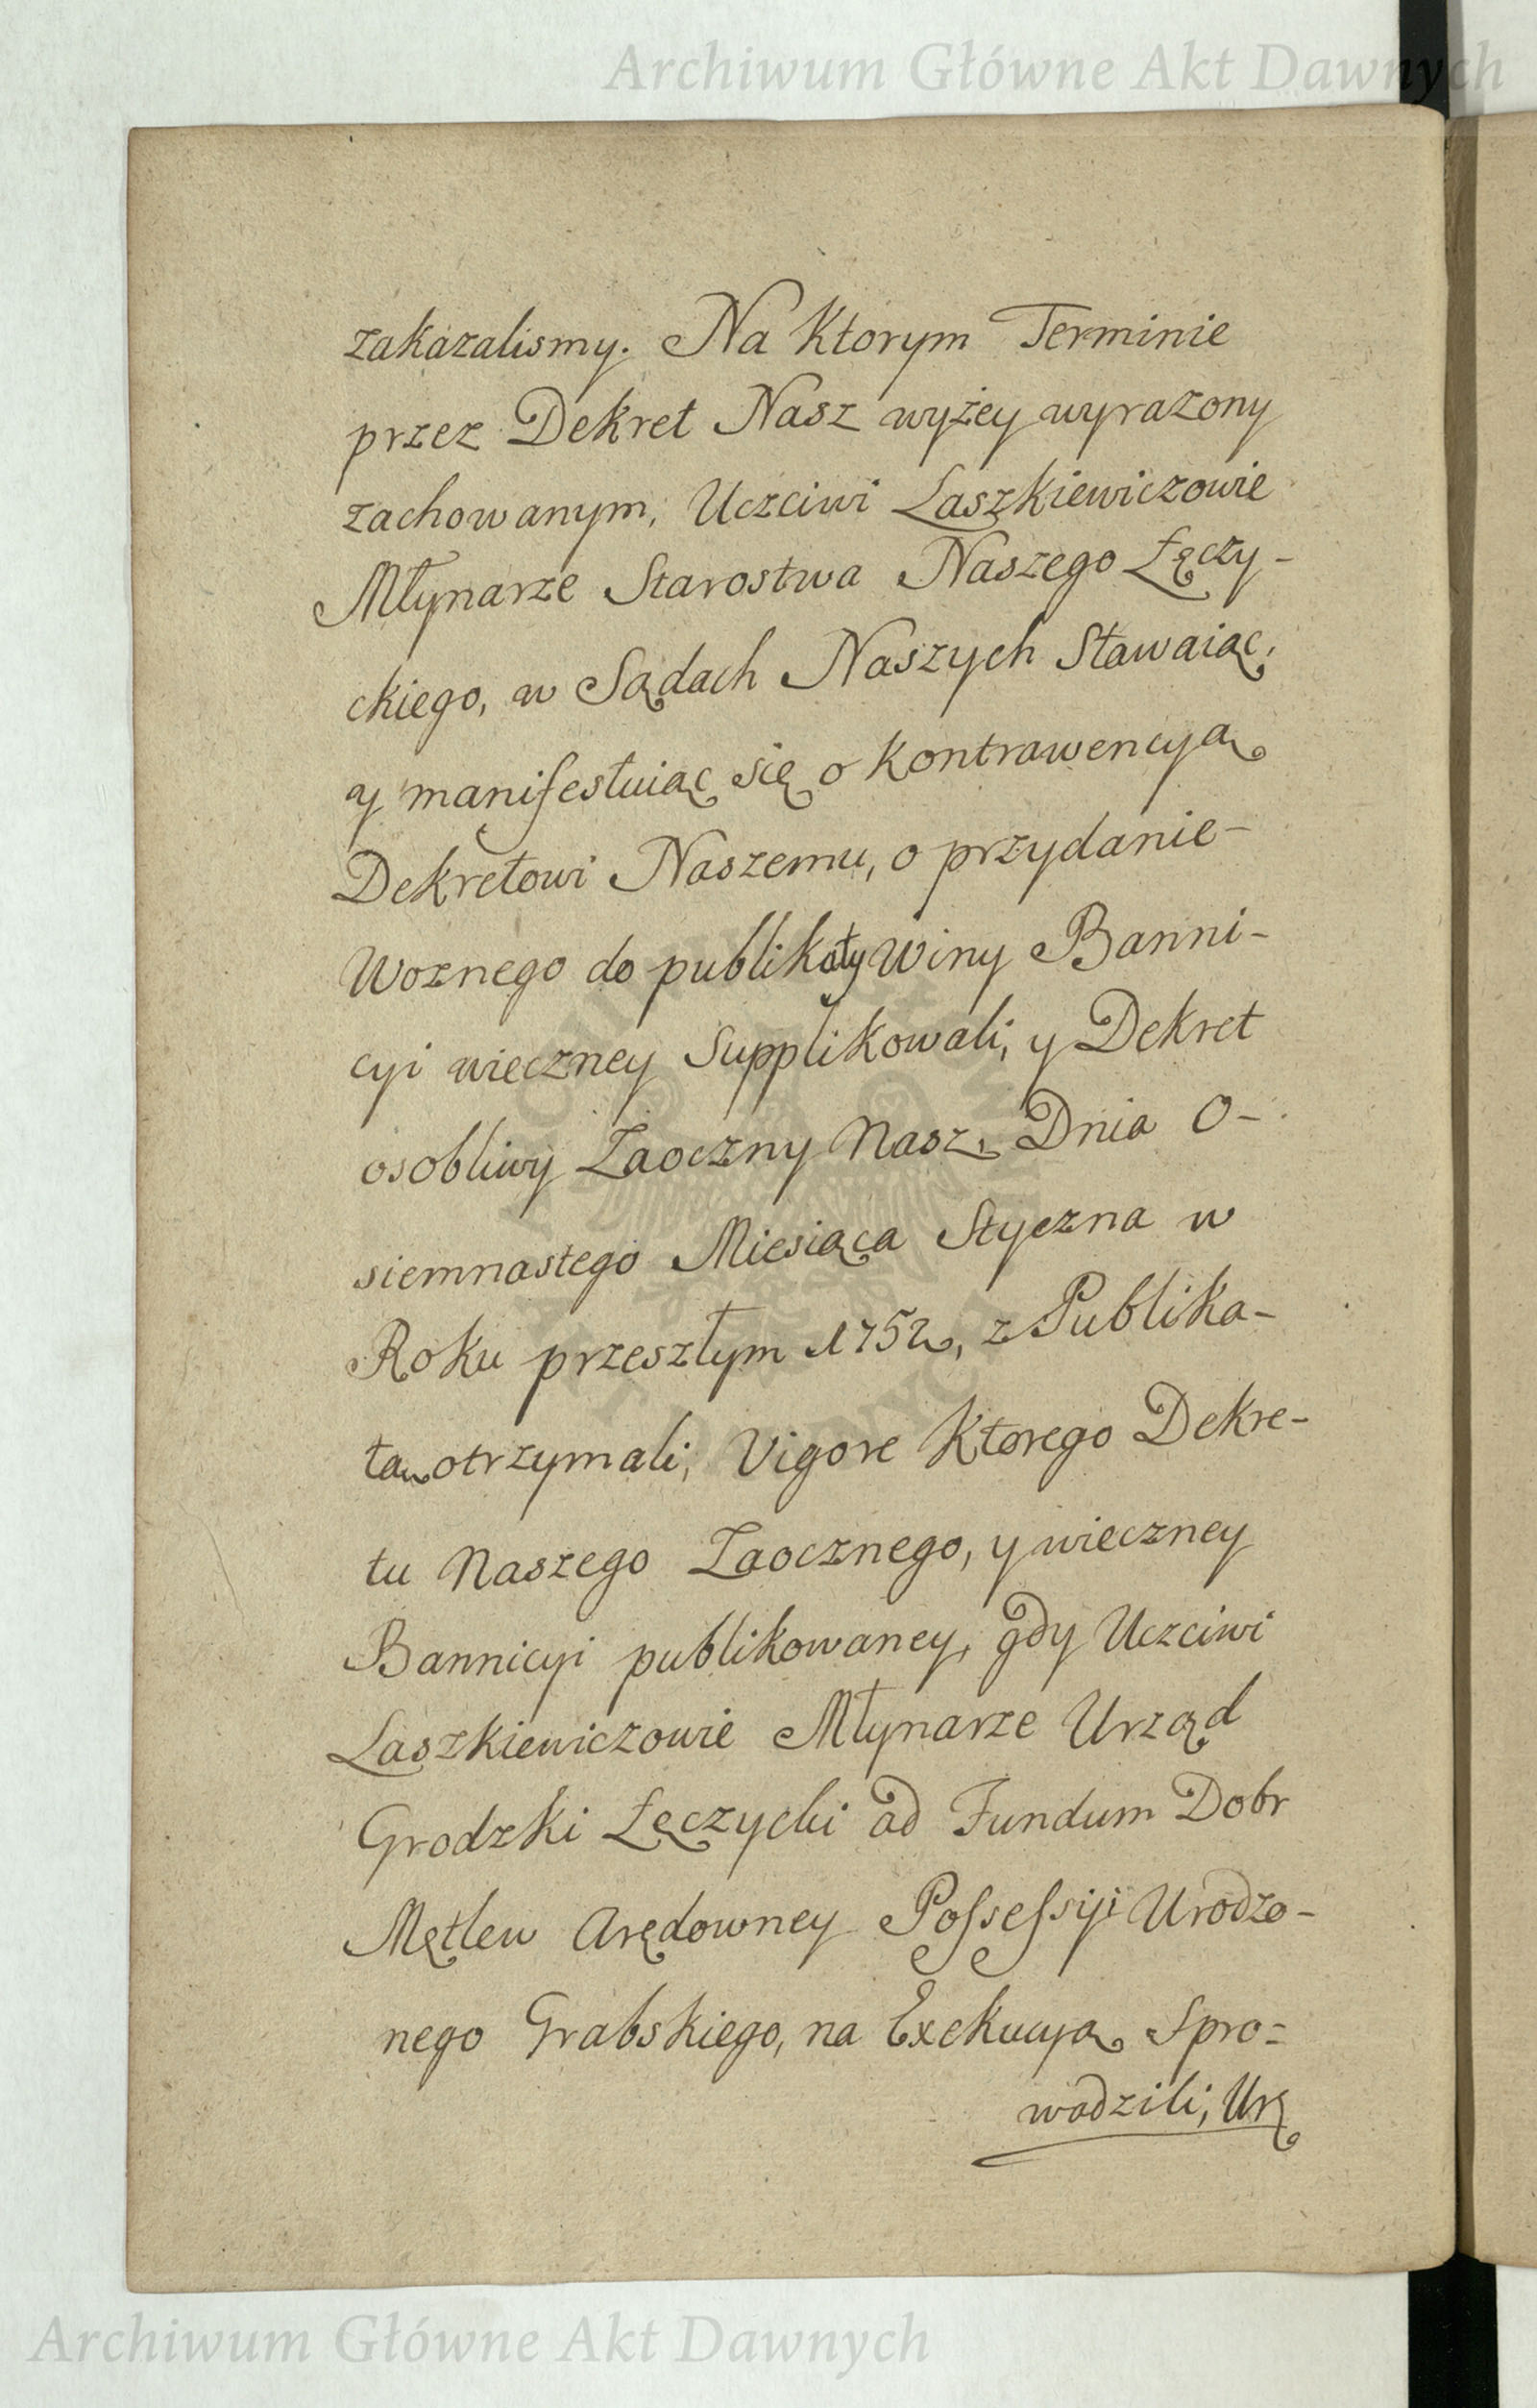 Archiwum Główne Akt Dawnych
zakazalismy. Na Ktorym Terminie
przez Dekret Nasz wyżey wyrazony
zachowanym, Uczciwi Laszkiewiczowie
Młynarze Starostwa Naszego Łęczy-
ckiego, w Sądach Naszych Stawaiąc,
y manifestuiąc się o Kontrawencyą
Dekretowi Naszemu, o przydanie-
Woznego do publikaty Winy Banni-
cyi wieczney Supplikowali, y Dekret
osobliwy Zaoczny Nasz, Dnia O-
siemnastego Miesiąca Styczna w
Roku przeszłym 1752, z Publika-
tą otrzymali; Vigore Ktorego Dekre-
tu Naszego Zaocznego, y wieczney
Bannicyi publikowaney, gdy Uczciwi
Laszkiewiczowie Młynarze Urząd
Grodzki Łęczycki ad Fundum Dobr
Mętlew Arędowney Possessyi Urodzo-
nego Grabskiego, na Exekucyą Spro=
wadzili, Urz
Archiwum Główne Akt Dawnych